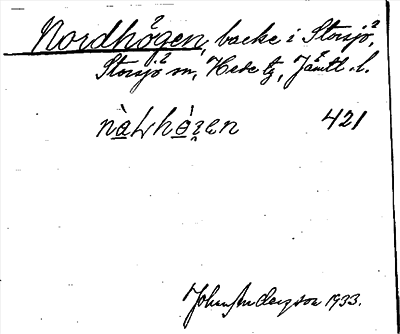 Nordhögen, backe i Storsjö,
Storsjö sn, Hede tg, Jämtl. l.
421
John Andersson 1933.